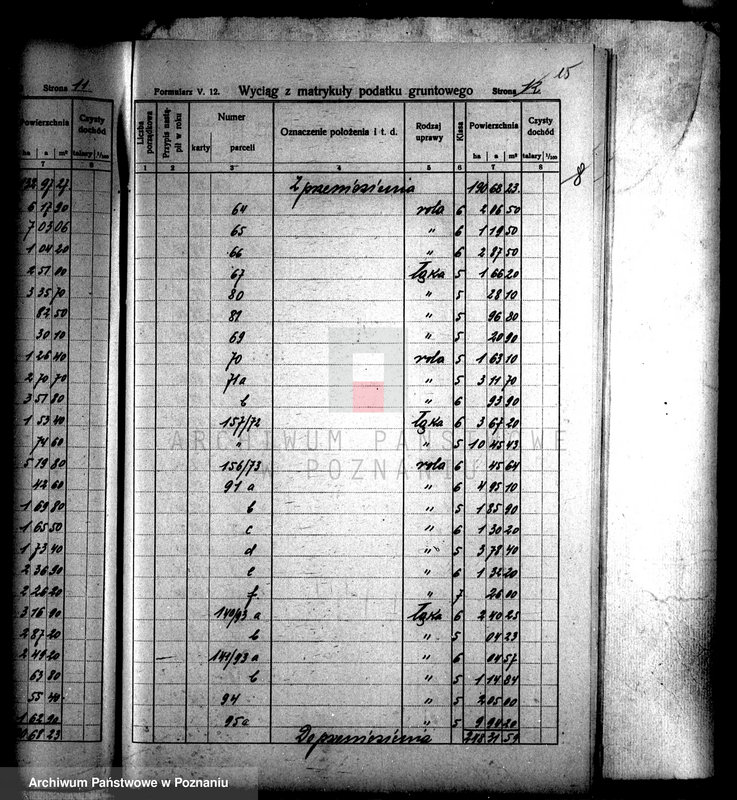 Strona 11
Powierzchnia Czysty dochód
ha a m² talary 1/100
7 8
132 97 27
6 17 90
7 03 06
1 04 20
2 51 00
3 35 70
82 50
30 10
1 26 40
2 70 70
3 51 80
1 53 40
74 60
5 19 80
42 60
1 69 80
1 65 50
1 73 40
2 36 90
2 26 20
3 76 90
2 87 20
2 49 20
63 80
55 40
1 62 90
68 23
15
Formularz V. 12. Wyciąg z matrykuły podatku gruntowego Strona 12
Liczba porządkowa Przypis nastąpił w roku Numer karty parceli Oznaczenie położenia i t. d. Rodzaj uprawy Klasa Powierzchnia ha a m² Czysty dochód talary 1/100
1 2 3 4 5 6 7 8
8
Z przeniesienia 190 68 23
64 rola 6 2 06 50
65 " 6 1 19 50
66 " 6 2 87 50
67 łąka 5 1 66 20
80 " 5 28 10
81 " 5 96 80
69 " 5 20 90
70 rola 5 1 63 10
71a " 5 3 11 70
b " 6 93 90
157/72 łąka 6 3 67 20
" " 5 10 45 43
156/73 rola 6 45 64
91 a " 6 4 95 10
b " 5 1 85 90
c " 6 1 30 20
d " 5 3 78 40
e " 6 1 32 20
f " 7 26 00
140/93 a łąka 6 2 40 25
b " 5 04 23
141/93 a " 6 04 57
b " 5 1 14 84
94 " 5 2 05 00
95a " 5 9 90 20
Do przeniesienia 31 59
ARCHIWUM PAŃSTWOWE
W POZNANIU
Archiwum Państwowe w Poznaniu